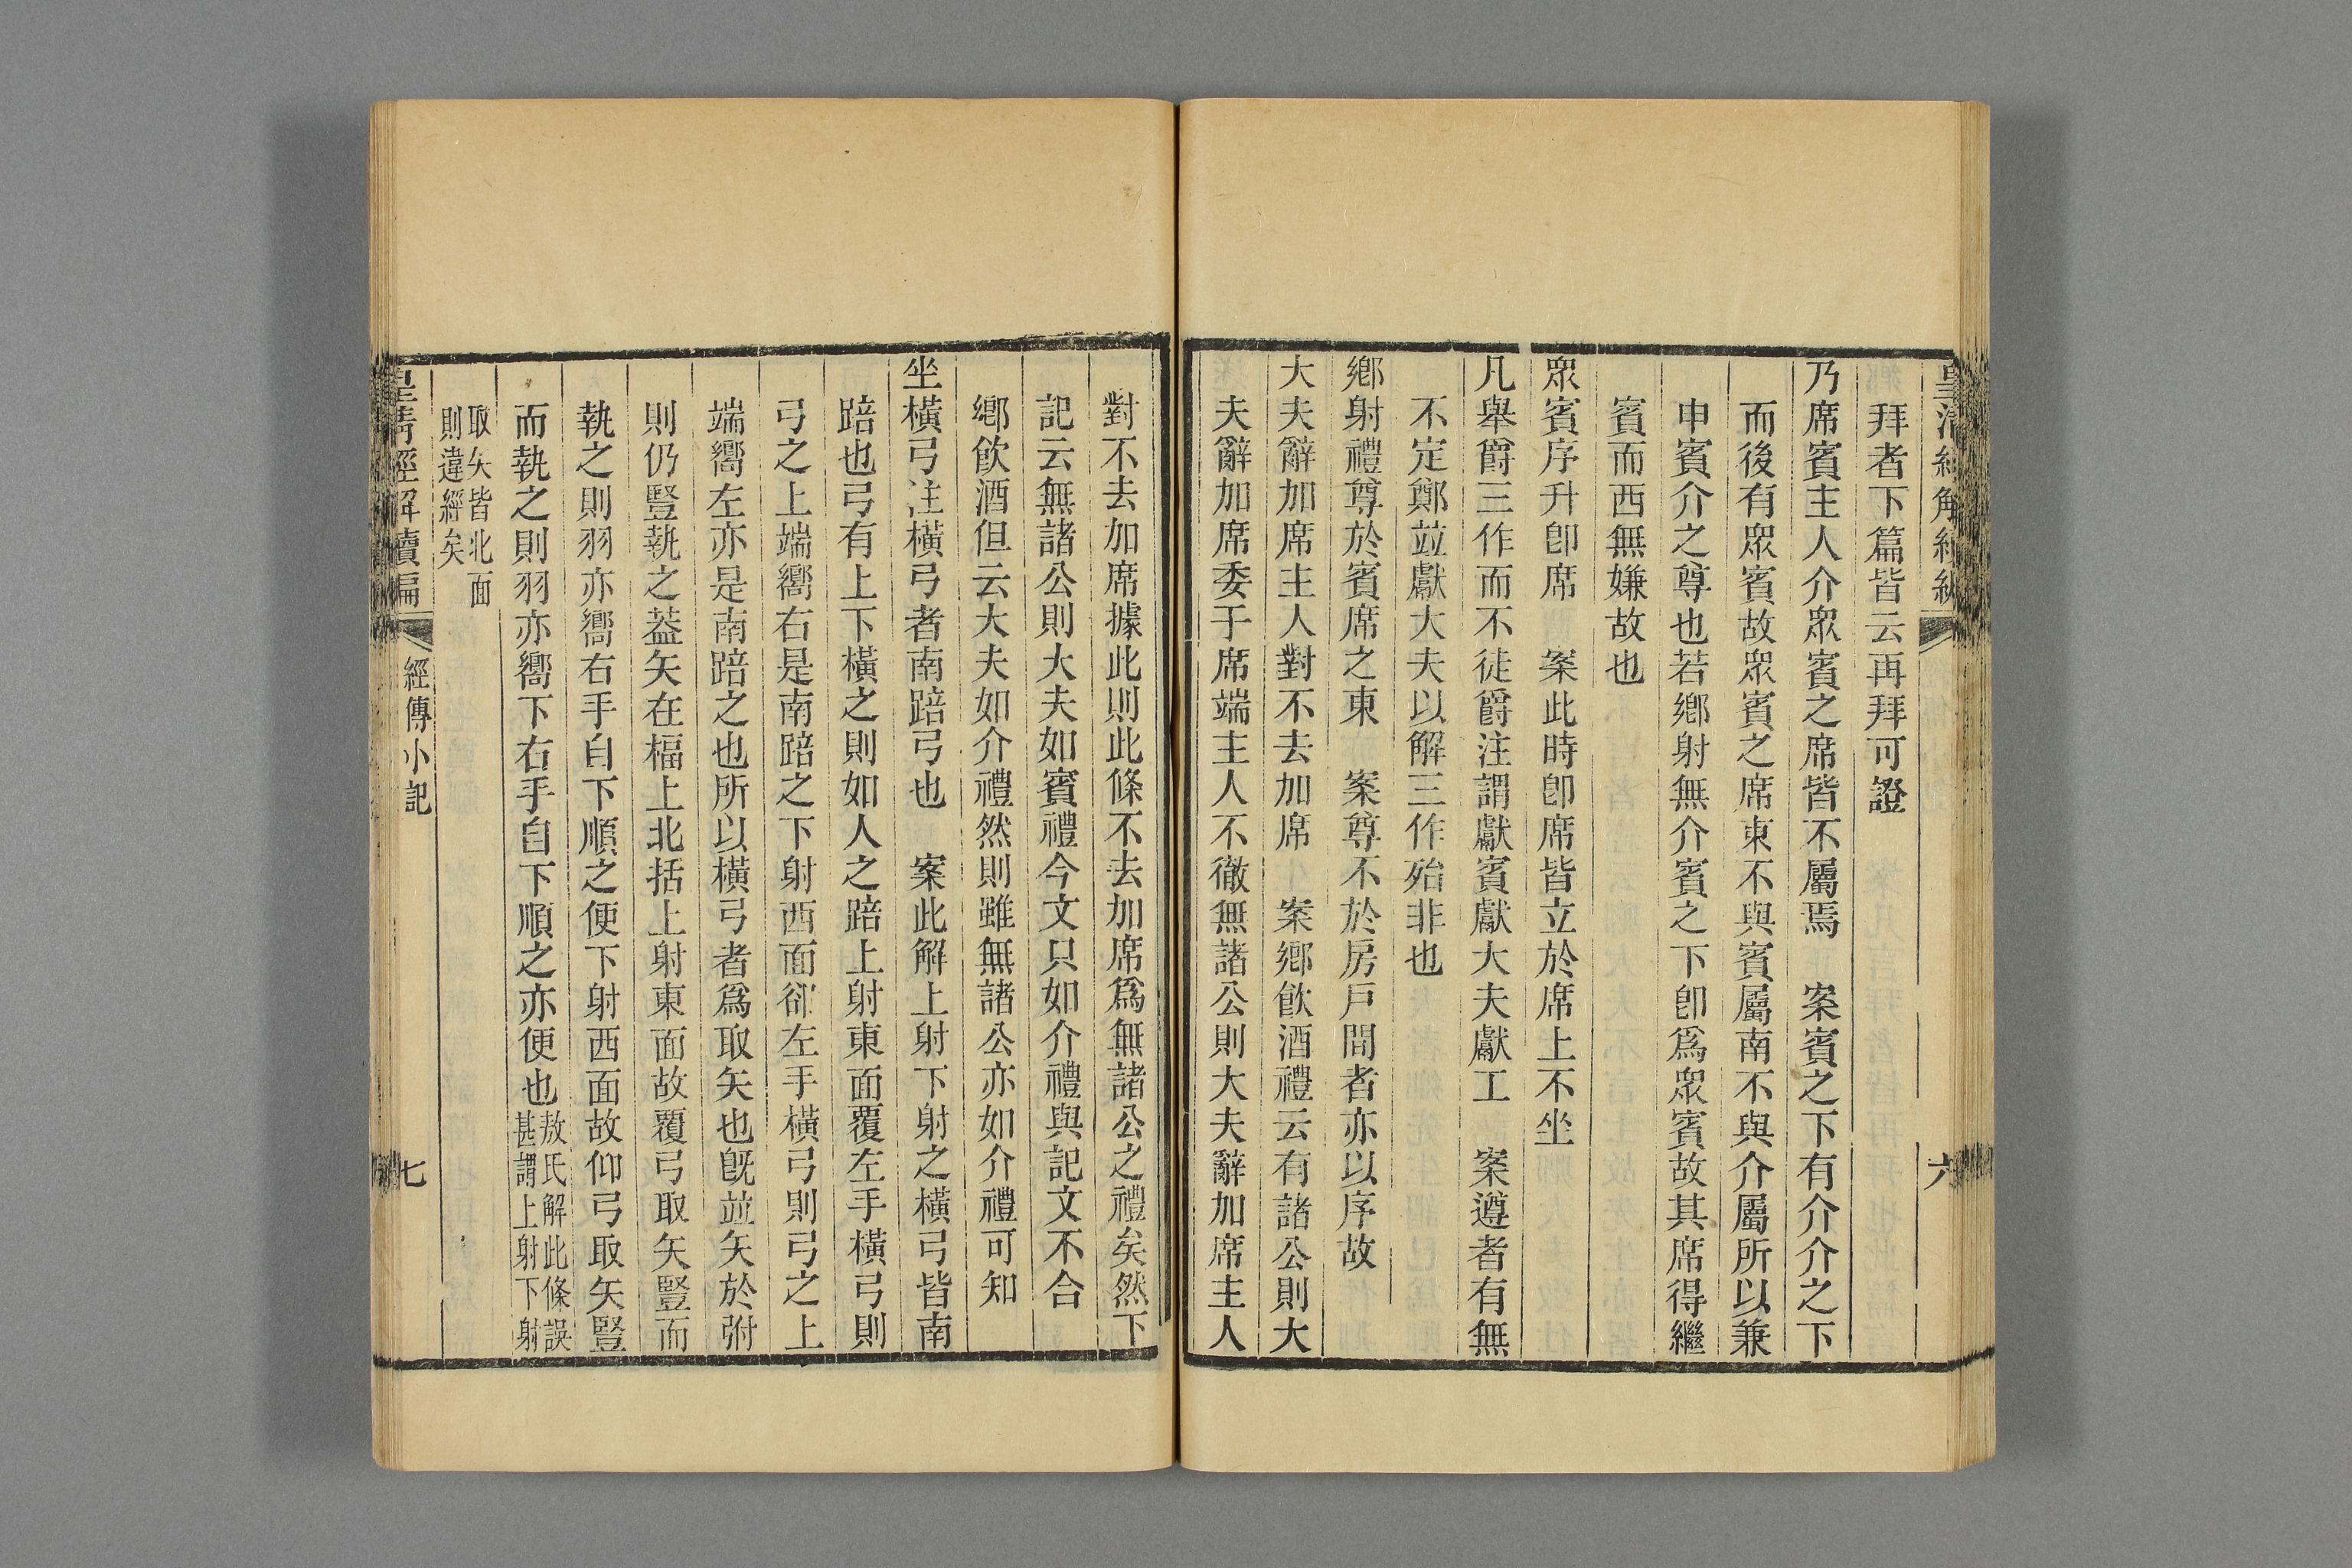 皇清經解續編
六
拜者下篇皆云再拜可證
乃席賓主人介眾賓之席皆不屬焉　案賓之下有介介之下
而後有眾賓故眾賓之席東不與賓屬南不與介屬所以兼
申賓介之尊也若鄉射無介賓之下卽爲眾賓故其席得繼
賓而西無嫌故也
眾賓序升卽席　案此時卽席皆立於席上不坐
凡舉爵三作而不徒爵注謂獻賓獻大夫獻工　案遵者有無
不定鄭竝獻大夫以解三作殆非也
鄉射禮尊於賓席之東　案尊不於房戶間者亦以序故
大夫辭加席主人對不去加席　案鄉飮酒禮云有諸公則大
夫辭加席委于席端主人不徹無諸公則大夫辭加席主人
對不去加席據此則此條不去加席爲無諸公之禮矣然下
記云無諸公則大夫如賓禮今文只如介禮與記文不合
鄉飮酒但云大夫如介禮然則雖無諸公亦如介禮可知
坐橫弓注橫弓者南踣弓也　案此解上射下射之橫弓皆南
踣也弓有上下橫之則如人之踣上射東面覆左手橫弓則
弓之上端嚮右是南踣之下射西面卻左手橫弓則弓之上
端嚮左亦是南踣之也所以橫弓者爲取矢也旣竝矢於弣
則仍豎執之葢矢在楅上北括上射東面故覆弓取矢豎而
執之則羽亦嚮右手自下順之便下射西面故仰弓取矢豎
而執之則羽亦嚮下右手自下順之亦便也敖氏解此條誤
甚謂上射下射
取矢皆北面
則違經矣
皇清經解續編
經傳小記
七